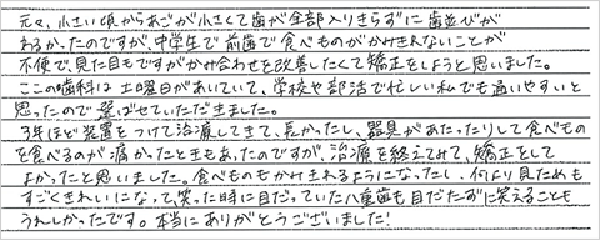 元々、小さい頃からあごが小さくて歯が全部入りきらずに歯並びが
わるかったのですが、中学生で前歯で食べものがかみきれないことが
不便で見た目もですがかみ合わせを改善したくて矯正をしようと思いました。
ここの歯科は土曜日があいていて、学校や部活で忙しい私でも通いやすいと
思ったので選ばせていただきました。
3年ほど装置をつけて治療してきて、長かったし、器具があたったりして食べもの
を食べるのが痛かったときもあったのですが、治療を終えてみて、矯正をして
よかったと思いました。食べものもかみきれるようになったし、何より見ためも
すごくきれいになって、笑った時に目だっていた八重歯も目だたずに笑えることも
うれしかったです。本当にありがとうございました!